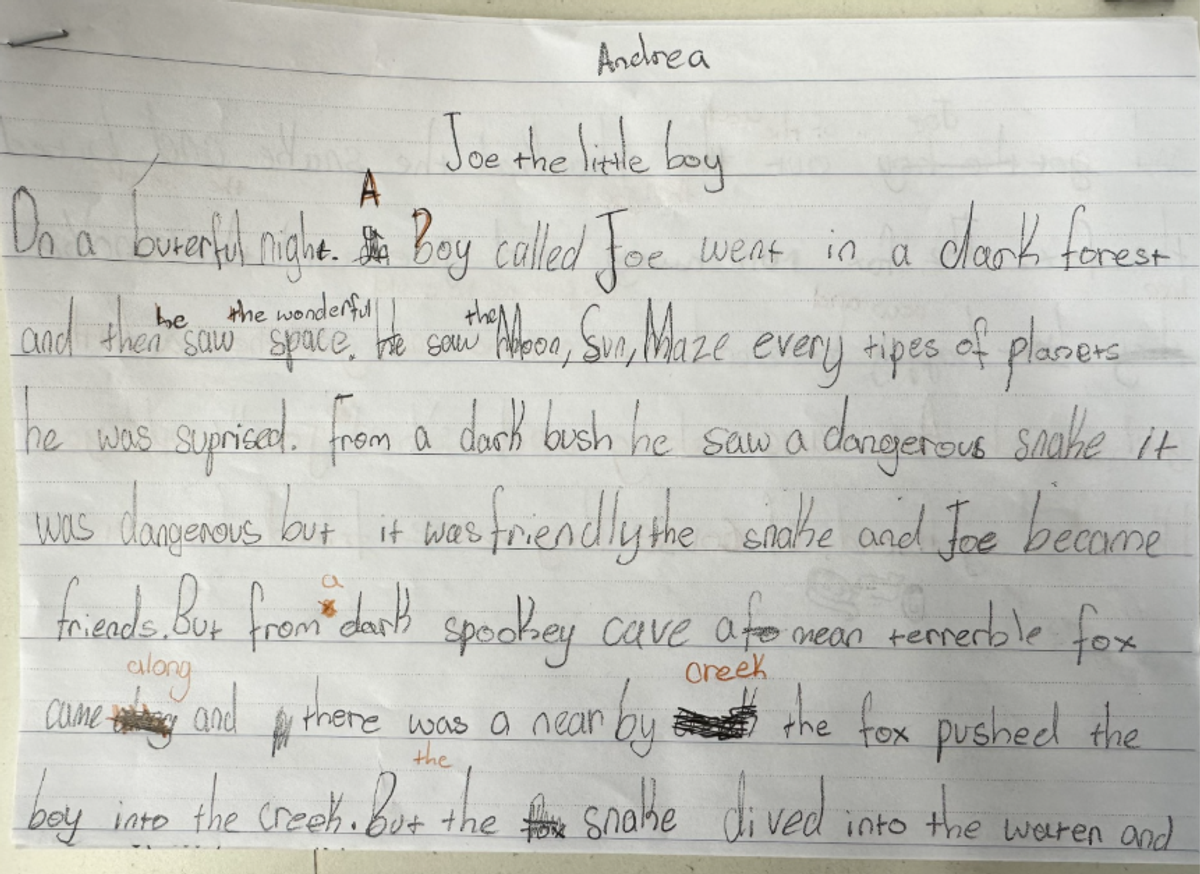 Andrea
Joe the little boy
A
On a buterful night. Boy called Joe went in a dark forest
he the wonderful the
and then saw space. He saw Moon, Sun, Maze every tipes of planets
he was suprised. From a dark bush he saw a dangerous snake it
was dangerous but it was friendly the snake and Joe became
a
friends. But from dark spookey cave a mean terrerble fox
along creek
came and there was a near by the fox pushed the
the
boy into the creek. But the snake dived into the water and